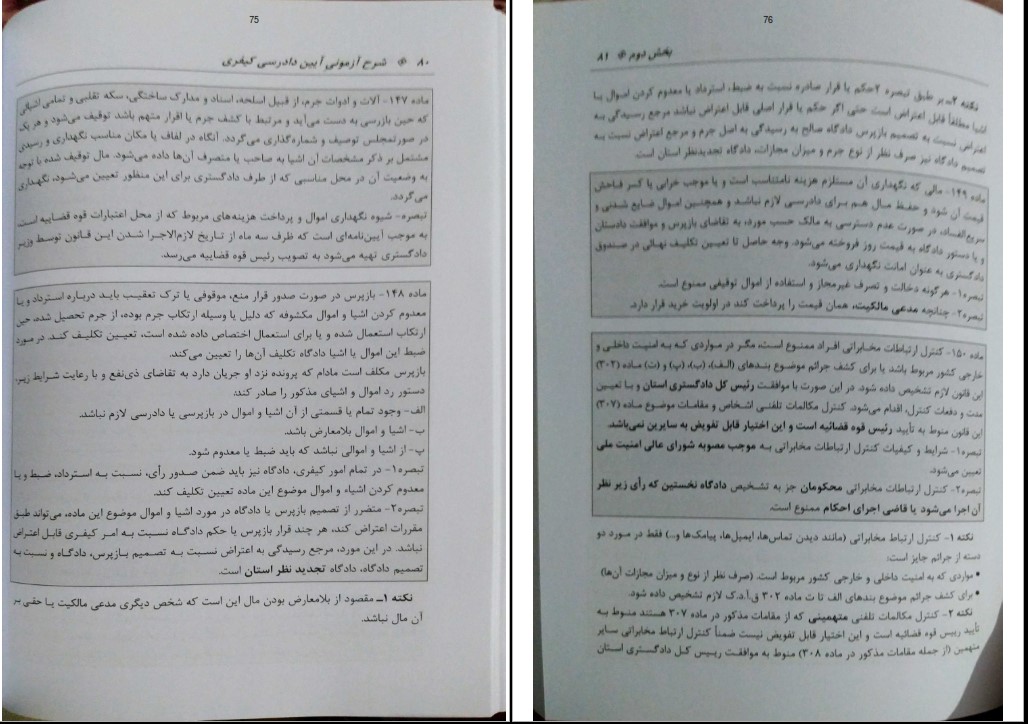 75
۸۰ ❋ شرح آزمونی آیین دادرسی کیفری
ماده ۱۴۷- آلات و ادوات جرم، از قبیل اسلحه، اسناد و مدارک ساختگی، سکه تقلبی و تمامی اشیائی
که حین بازرسی به دست می‌آید و مرتبط با کشف جرم یا اقرار متهم باشد توقیف می‌شود و هر یک
در صورتمجلس توصیف و شماره‌گذاری می‌گردد. آنگاه در لفاف یا مکان مناسب نگهداری و رسیدی
مشتمل بر ذکر مشخصات آن اشیا به صاحب یا متصرف آن‌ها داده می‌شود. مال توقیف شده با توجه
به وضعیت آن در محل مناسبی که از طرف دادگستری برای این منظور تعیین می‌شود، نگهداری
می‌گردد.
تبصره- شیوه نگهداری اموال و پرداخت هزینه‌های مربوط که از محل اعتبارات قوه قضاییه است،
به موجب آیین‌نامه‌ای است که ظرف سه ماه از تاریخ لازم‌الاجرا شدن این قانون توسط وزیر
دادگستری تهیه می‌شود به تصویب رئیس قوه قضاییه می‌رسد.
ماده ۱۴۸- بازپرس در صورت صدور قرار منع، موقوفی یا ترک تعقیب باید درباره استرداد و یا
معدوم کردن اشیا و اموال مکشوفه که دلیل یا وسیله ارتکاب جرم بوده، از جرم تحصیل شده، حین
ارتکاب استعمال شده و یا برای استعمال اختصاص داده شده است، تعیین تکلیف کند. در مورد
ضبط این اموال یا اشیا دادگاه تکلیف آن‌ها را تعیین می‌کند.
بازپرس مکلف است مادام که پرونده نزد او جریان دارد به تقاضای ذی‌نفع و با رعایت شرایط زیر،
دستور رد اموال و اشیای مذکور را صادر کند:
الف- وجود تمام یا قسمتی از آن اشیا و اموال در بازپرسی یا دادرسی لازم نباشد.
ب- اشیا و اموال بلامعارض باشد.
پ- از اشیا و اموالی نباشد که باید ضبط یا معدوم شود.
تبصره۱- در تمام امور کیفری، دادگاه نیز باید ضمن صدور رأی، نسبت به استرداد، ضبط و یا
معدوم کردن اشیاء و اموال موضوع این ماده تعیین تکلیف کند.
تبصره۲- متضرر از تصمیم بازپرس یا دادگاه در مورد اشیا و اموال موضوع این ماده، می‌تواند طبق
مقررات اعتراض کند، هر چند قرار بازپرس یا حکم دادگاه نسبت به امر کیفری قابل اعتراض
نباشد. در این مورد، مرجع رسیدگی به اعتراض نسبت به تصمیم بازپرس، دادگاه و نسبت به
تصمیم دادگاه، دادگاه تجدید نظر استان است.
نکته ۱ـ مقصود از بلامعارض بودن مال این است که شخص دیگری مدعی مالکیت یا حقی بر
آن مال نباشد.
76
بخش دوم ❋ ۸۱
نکته ۲ـ بر طبق تبصره ۲حکم یا قرار صادره نسبت به ضبط، استرداد یا معدوم کردن اموال یا
اشیا مطلقاً قابل اعتراض است حتی اگر حکم یا قرار اصلی قابل اعتراض نباشد مرجع رسیدگی به
اعتراض نسبت به تصمیم بازپرس دادگاه صالح به رسیدگی به اصل جرم و مرجع اعتراض نسبت به
تصمیم دادگاه نیز صرف نظر از نوع جرم و میزان مجازات، دادگاه تجدیدنظر استان است
ماده ۱۴۹- مالی که نگهداری آن مستلزم هزینه نامتناسب است و یا موجب خرابی یا کسر فاحش
قیمت آن شود و حفظ مال هم برای دادرسی لازم نباشد و همچنین اموال ضایع شدنی و
سریع‌الفساد، در صورت عدم دسترسی به مالک حسب مورد، به تقاضای بازپرس و موافقت دادستان
و یا دستور دادگاه به قیمت روز فروخته می‌شود. وجه حاصل تا تعیین تکلیف نهائی در صندوق
دادگستری به عنوان امانت نگهداری می‌شود.
تبصره۱- هرگونه دخالت و تصرف غیرمجاز و استفاده از اموال توقیفی ممنوع است.
تبصره۲- چنانچه مدعی مالکیت، همان قیمت را پرداخت کند در اولویت خرید قرار دارد.
ماده ۱۵۰- کنترل ارتباطات مخابراتی افراد ممنوع است، مگر در مواردی که به امنیت داخلی و
خارجی کشور مربوط باشد یا برای کشف جرائم موضوع بندهای (الف)، (ب)، (پ) و (ت) ماده (۳۰۲)
این قانون لازم تشخیص داده شود. در این صورت با موافقت رئیس کل دادگستری استان و با تعیین
مدت و دفعات کنترل، اقدام می‌شود. کنترل مکالمات تلفنی اشخاص و مقامات موضوع ماده (۳۰۷)
این قانون منوط به تأیید رئیس قوه قضائیه است و این اختیار قابل تفویض به سایرین نمی‌باشد.
تبصره۱- شرایط و کیفیات کنترل ارتباطات مخابراتی به موجب مصوبه شورای عالی امنیت ملی
تعیین می‌شود.
تبصره۲- کنترل ارتباطات مخابراتی محکومان جز به تشخیص دادگاه نخستین که رأی زیر نظر
آن اجرا می‌شود یا قاضی اجرای احکام ممنوع است.
نکته ۱- کنترل ارتباط مخابراتی (مانند دیدن تماس‌ها، ایمیل‌ها، پیامک‌ها و..) فقط در مورد دو
دسته از جرائم جایز است:
• مواردی که به امنیت داخلی و خارجی کشور مربوط است. (صرف نظر از نوع و میزان مجازات آن‌ها)
• برای کشف جرائم موضوع بندهای الف تا ت ماده ۳۰۲ ق.آ.د.ک لازم تشخیص داده شود.
نکته ۲- کنترل مکالمات تلفنی متهمینی که از مقامات مذکور در ماده ۳۰۷ هستند منوط به
تأیید رییس قوه قضائیه است و این اختیار قابل تفویض نیست ضمناً کنترل ارتباط مخابراتی سایر
متهمین (از جمله مقامات مذکور در ماده ۳۰۸) منوط به موافقت رییس کل دادگستری استان